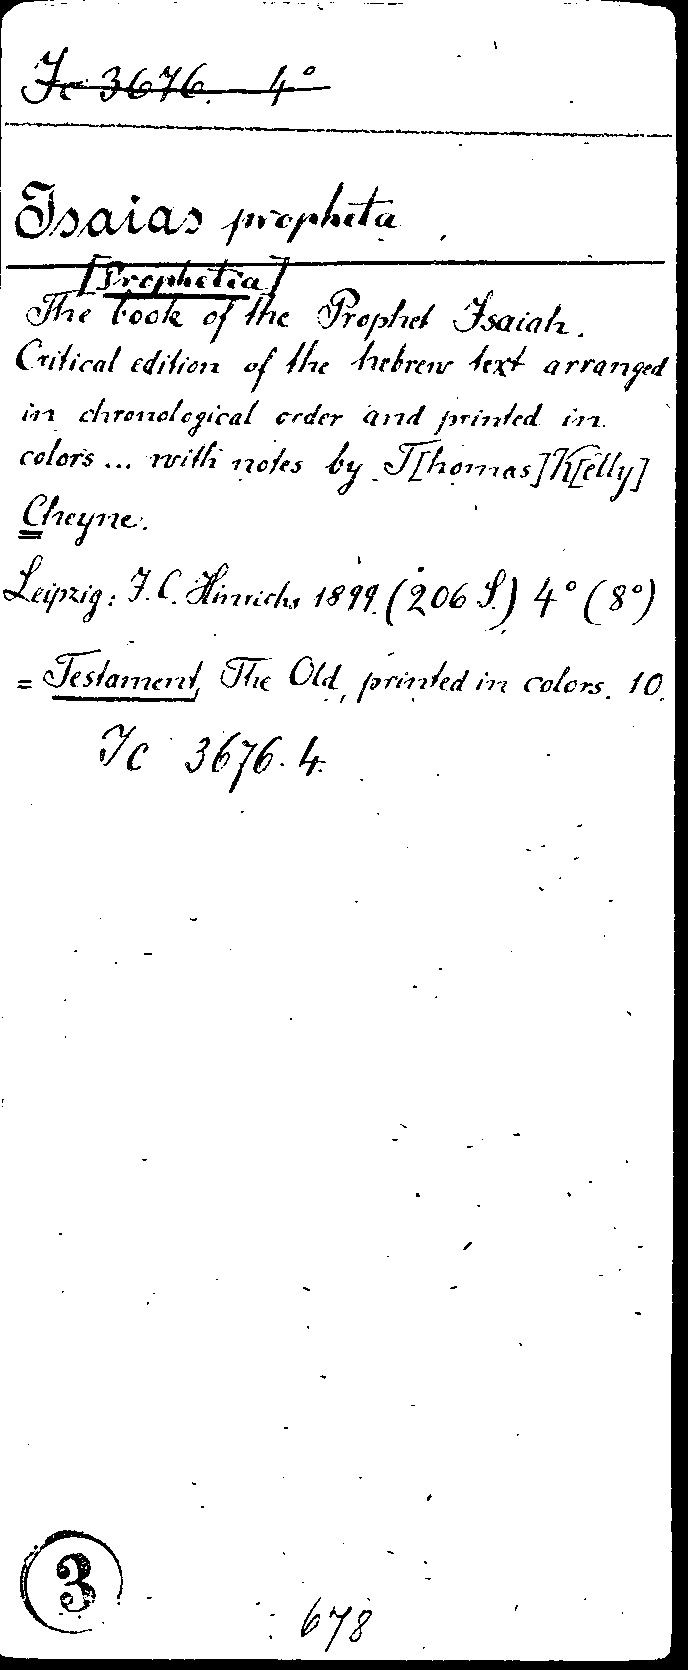 Ic 3676. 4°
Isaias propheta
[Prophetia]
The book of the Prophet Isaiah.
Critical edition of the hebrew text arranged
in chronological order and printed in
colors ... with notes by T[homas] K[elly]
Cheyne.
Leipzig: J. C. Hinrichs 1899. (206 S.) 4° (8°)
= Testament, The Old, printed in colors. 10.
Ic 3676. 4.
3
678